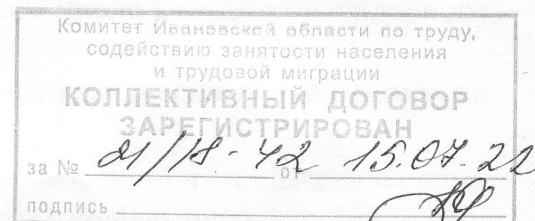 Комитет Ивановской области по труду,
содействию занятости населения
и трудовой миграции
КОЛЛЕКТИВНЫЙ ДОГОВОР
ЗАРЕГИСТРИРОВАН
за № 21/18-42 от 15.07.22
подпись